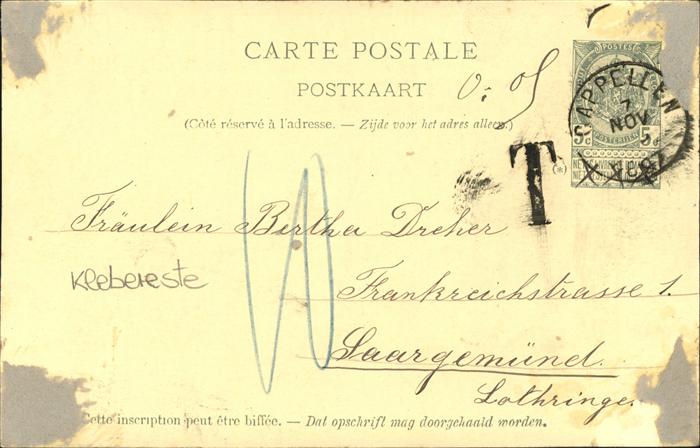 CARTE POSTALE
POSTKAART
0,05
(Côté réservé à l'adresse. — Zijde voor het adres alleen.)
POSTES
POSTERIJEN
5c 5c
CAPPELLEN
7
NOV
5
T
(*)
10
Fräulein Bertha Dreher
Klebereste
Frankreichstrasse 1.
Saargemünd.
Lothringe.
Cette inscription peut être biffée. — Dat opschrift mag doorgehaald worden.